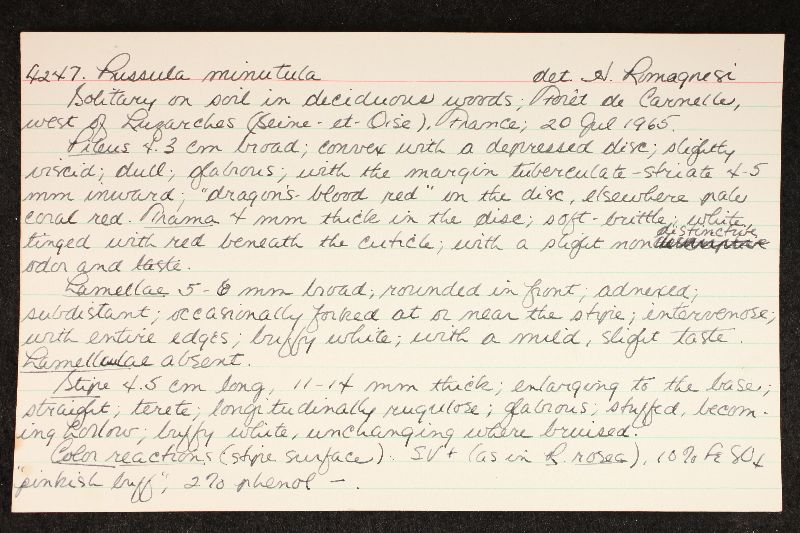 4247. Russula minutula det. H. Romagnesi
Solitary on soil in deciduous woods; Forêt de Carnelle,
west of Luzarches (Seine-et-Oise), France; 20 Jul 1965.
Pileus 4.3 cm broad; convex with a depressed disc; slightly
viscid; dull; glabrous; with the margin tuberculate-striate 4-5
mm inward; "dragon's-blood red" on the disc, elsewhere pale
coral red. Trama 4 mm thick in the disc; soft-brittle; white
tinged with red beneath the cuticle; with a slight nondistinctive
odor and taste.
Lamellae 5-6 mm broad; rounded in front; adnexed;
subdistant; occasionally forked at or near the stipe; intervenose;
with entire edges; buffy white; with a mild, slight taste.
Lamellulae absent.
Stipe 4.5 cm long, 11-14 mm thick; enlarging to the base;
straight; terete; longitudinally rugulose; glabrous; stuffed, becom-
ing hollow; buffy white, unchanging where bruised.
Color reactions (stipe surface): SV+ (as in R. rosea), 10% FeSO4
"pinkish buff"; 2% phenol -.